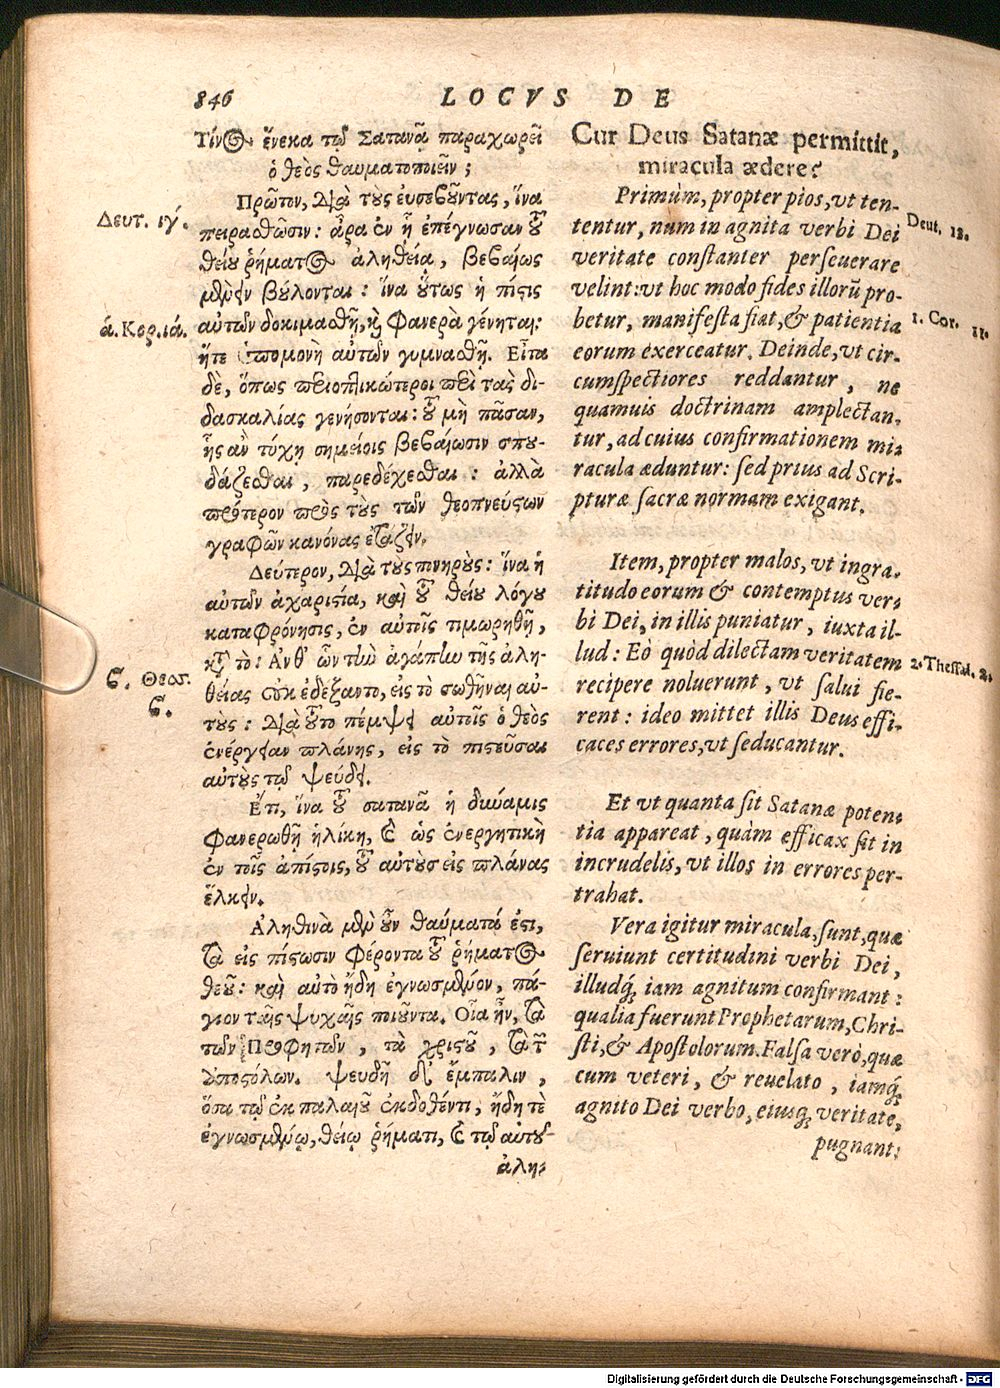 846
LOCVS DE
Τίνος ἕνεκα τῷ Σατανᾷ παραχωρεῖ
ὁ θεὸς θαυματοποιεῖν;
Πρῶτον, διὰ τοὺς εὐσεβοῦντας, ἵνα
πειρασθῶσιν: ἆρα ἐν ᾗ ἐπέγνωσαν τοῦ
θείου ῥήματος ἀληθείᾳ, βεβαίως
μένειν βούλονται: ἵνα οὕτως ἡ πίστις
αὐτῶν δοκιμασθῇ, καὶ φανερὰ γένηται:
ἥτε ὑπομονὴ αὐτῶν γυμνασθῇ. Εἶτα
δὲ, ὅπως περιοπτικώτεροι περὶ τὰς δι-
δασκαλίας γενήσονται: τοῦ μὴ πᾶσαν,
ἧς ἂν τύχῃ σημείοις βεβαίωσιν σπου-
δάζεσθαι, παρεδέχεσθαι: ἀλλὰ
πρότερον πρὸς τοὺς τῶν θεοπνεύστων
γραφῶν κανόνας ἐτάζειν.
Δεύτερον, διὰ τοὺς πονηροὺς: ἵνα ἡ
αὐτῶν ἀχαριστία, καὶ τοῦ θείου λόγου
καταφρόνησις, ἐν αὐτοῖς τιμωρηθῇ,
κατὰ τὸ: Ἀνθ' ὧν τὴν ἀγάπην τῆς ἀλη-
θείας οὐκ ἐδέξαντο, εἰς τὸ σωθῆναι αὐ-
τοὺς: διὰ τοῦτο πέμψει αὐτοῖς ὁ θεὸς
ἐνέργειαν πλάνης, εἰς τὸ πιστεῦσαι
αὐτοὺς τῷ ψεύδει.
Ἔτι, ἵνα τοῦ σατανᾶ ἡ δύναμις
φανερωθῇ ἡλίκη, καὶ ὡς ἐνεργητικὴ
ἐν τοῖς ἀπίστοις, τοῦ αὐτοὺς εἰς πλάνας
ἕλκειν.
Ἀληθινὰ μὲν οὖν θαύματά ἐστι,
τὰ εἰς πίστωσιν φέροντα τοῦ ῥήματος
θεοῦ: καὶ αὐτὸ ἤδη ἐγνωσμένον, πά-
γιον ταῖς ψυχαῖς ποιοῦντα. Οἷα ἦν, τὰ
τῶν Προφητῶν, τὰ χριστοῦ, τὰ τῶν
ἀποστόλων. ψευδῆ δ' ἔμπαλιν,
ὅσα τῷ ἐκ παλαιοῦ ἐκδοθέντι, ἤδη τὲ
ἐγνωσμένῳ, θείῳ ῥήματι, καὶ τῷ αὐτοῦ
ἀλη-
Δευτ. ιγ́.
ά. Κορ. ιά.
ϛ. Θεσ.
ϛ.
Cur Deus Satanæ permittit,
miracula ædere?
Primùm, propter pios, vt ten-
tentur, num in agnita verbi Dei
veritate constanter perseuerare
velint: vt hoc modo fides illorũ pro-
betur, manifesta fiat, & patientia
eorum exerceatur. Deinde, vt cir-
cumspectiores reddantur, ne
quamuis doctrinam amplectan-
tur, ad cuius confirmationem mi-
racula æduntur: sed prius ad Scri-
pturæ sacræ normam exigant.
Item, propter malos, vt ingra-
titudo eorum & contemptus ver-
bi Dei, in illis puniatur, iuxta il-
lud: Eò quòd dilectam veritatem
recipere noluerunt, vt salui fie-
rent: ideo mittet illis Deus effi-
caces errores, vt seducantur.
Et vt quanta sit Satanæ poten-
tia appareat, quàm efficax sit in
incrudelis, vt illos in errores per-
trahat.
Vera igitur miracula, sunt, quæ
seruiunt certitudini verbi Dei,
illudq́; iam agnitum confirmant:
qualia fuerunt Prophetarum, Chri-
sti, & Apostolorum. Falsa verò, quæ
cum veteri, & reuelato, iamq́;
agnito Dei verbo, eiusq́; veritate,
pugnant:
Deut. 13.
1. Cor. 11.
2. Thessal. 2.
Digitalisierung gefördert durch die Deutsche Forschungsgemeinschaft - DFG